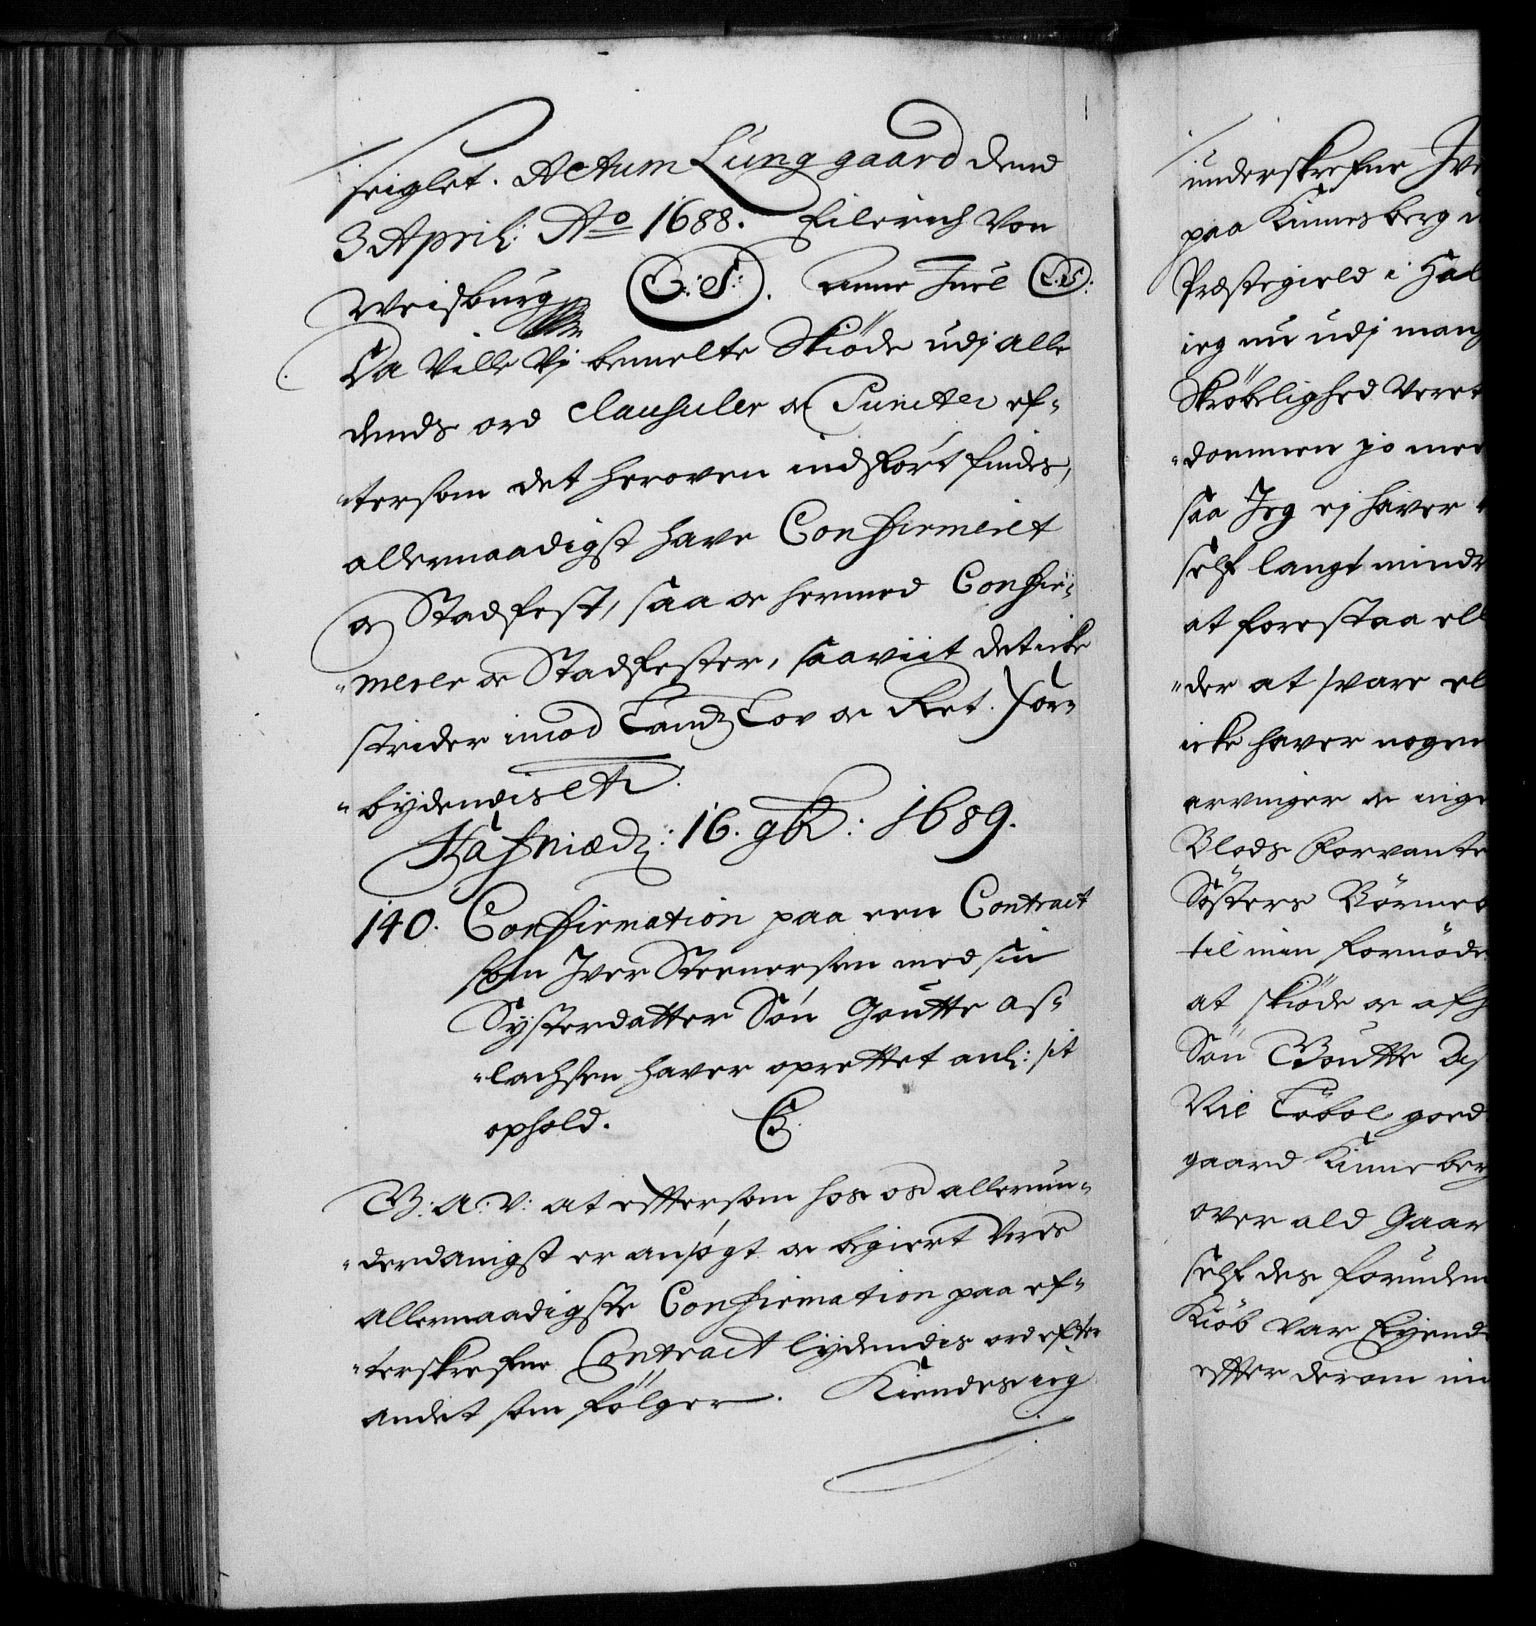 seiglet. Actum Lunggaard dend
3 April: Ao 1688. Eilerich Von
Weisburg L:S:. Anne Juel L:S:
Da Ville Vj bemelte Skiøde udj alle
dends ord Clausuler oc Puncter ef-
tersom det heroven indført findes,
allernaadigst have Confirmeret
oc Stadfest, saa oc hermed Confir-
merer oc Stadfester, saaviit det icke
strider imod Landz Lov oc Ret. For-
bydendis etc.
Hafniæ d: 16. 9br: 1689.
140. Confirmation paa een Contract
som Iver Steenersen med sin
Systerdatter Søn Goutte As-
lachsen haver oprettet anl: sit
ophold. C5.
G: A: V: at eftersom hos os allerun-
derdanigst er ansøgt oc begiert Vores
allernaadigste Confirmation paa ef-
terskrefne Contract lydendis ord efter
andet som følger. Kiendes ieg
underskrefne Ive
paa Kinnesberg u
Præstegield i Hal
ieg nu udj mang
Skrøbelighed Veret
dommen jo mee
saa Jeg ej haver
self langt mindr
at forestaa ell
der at svare el
icke haver nogen
arvinger oc inge
Blods Forvante
Søsters Børneb
til min fornøde
at skiøde oc afh
Søn Goutte As
Vil Løbol goed
gaard Kinneberg
over ald Gaar
self des foruden
Kiøb var Eyend
efter derom in